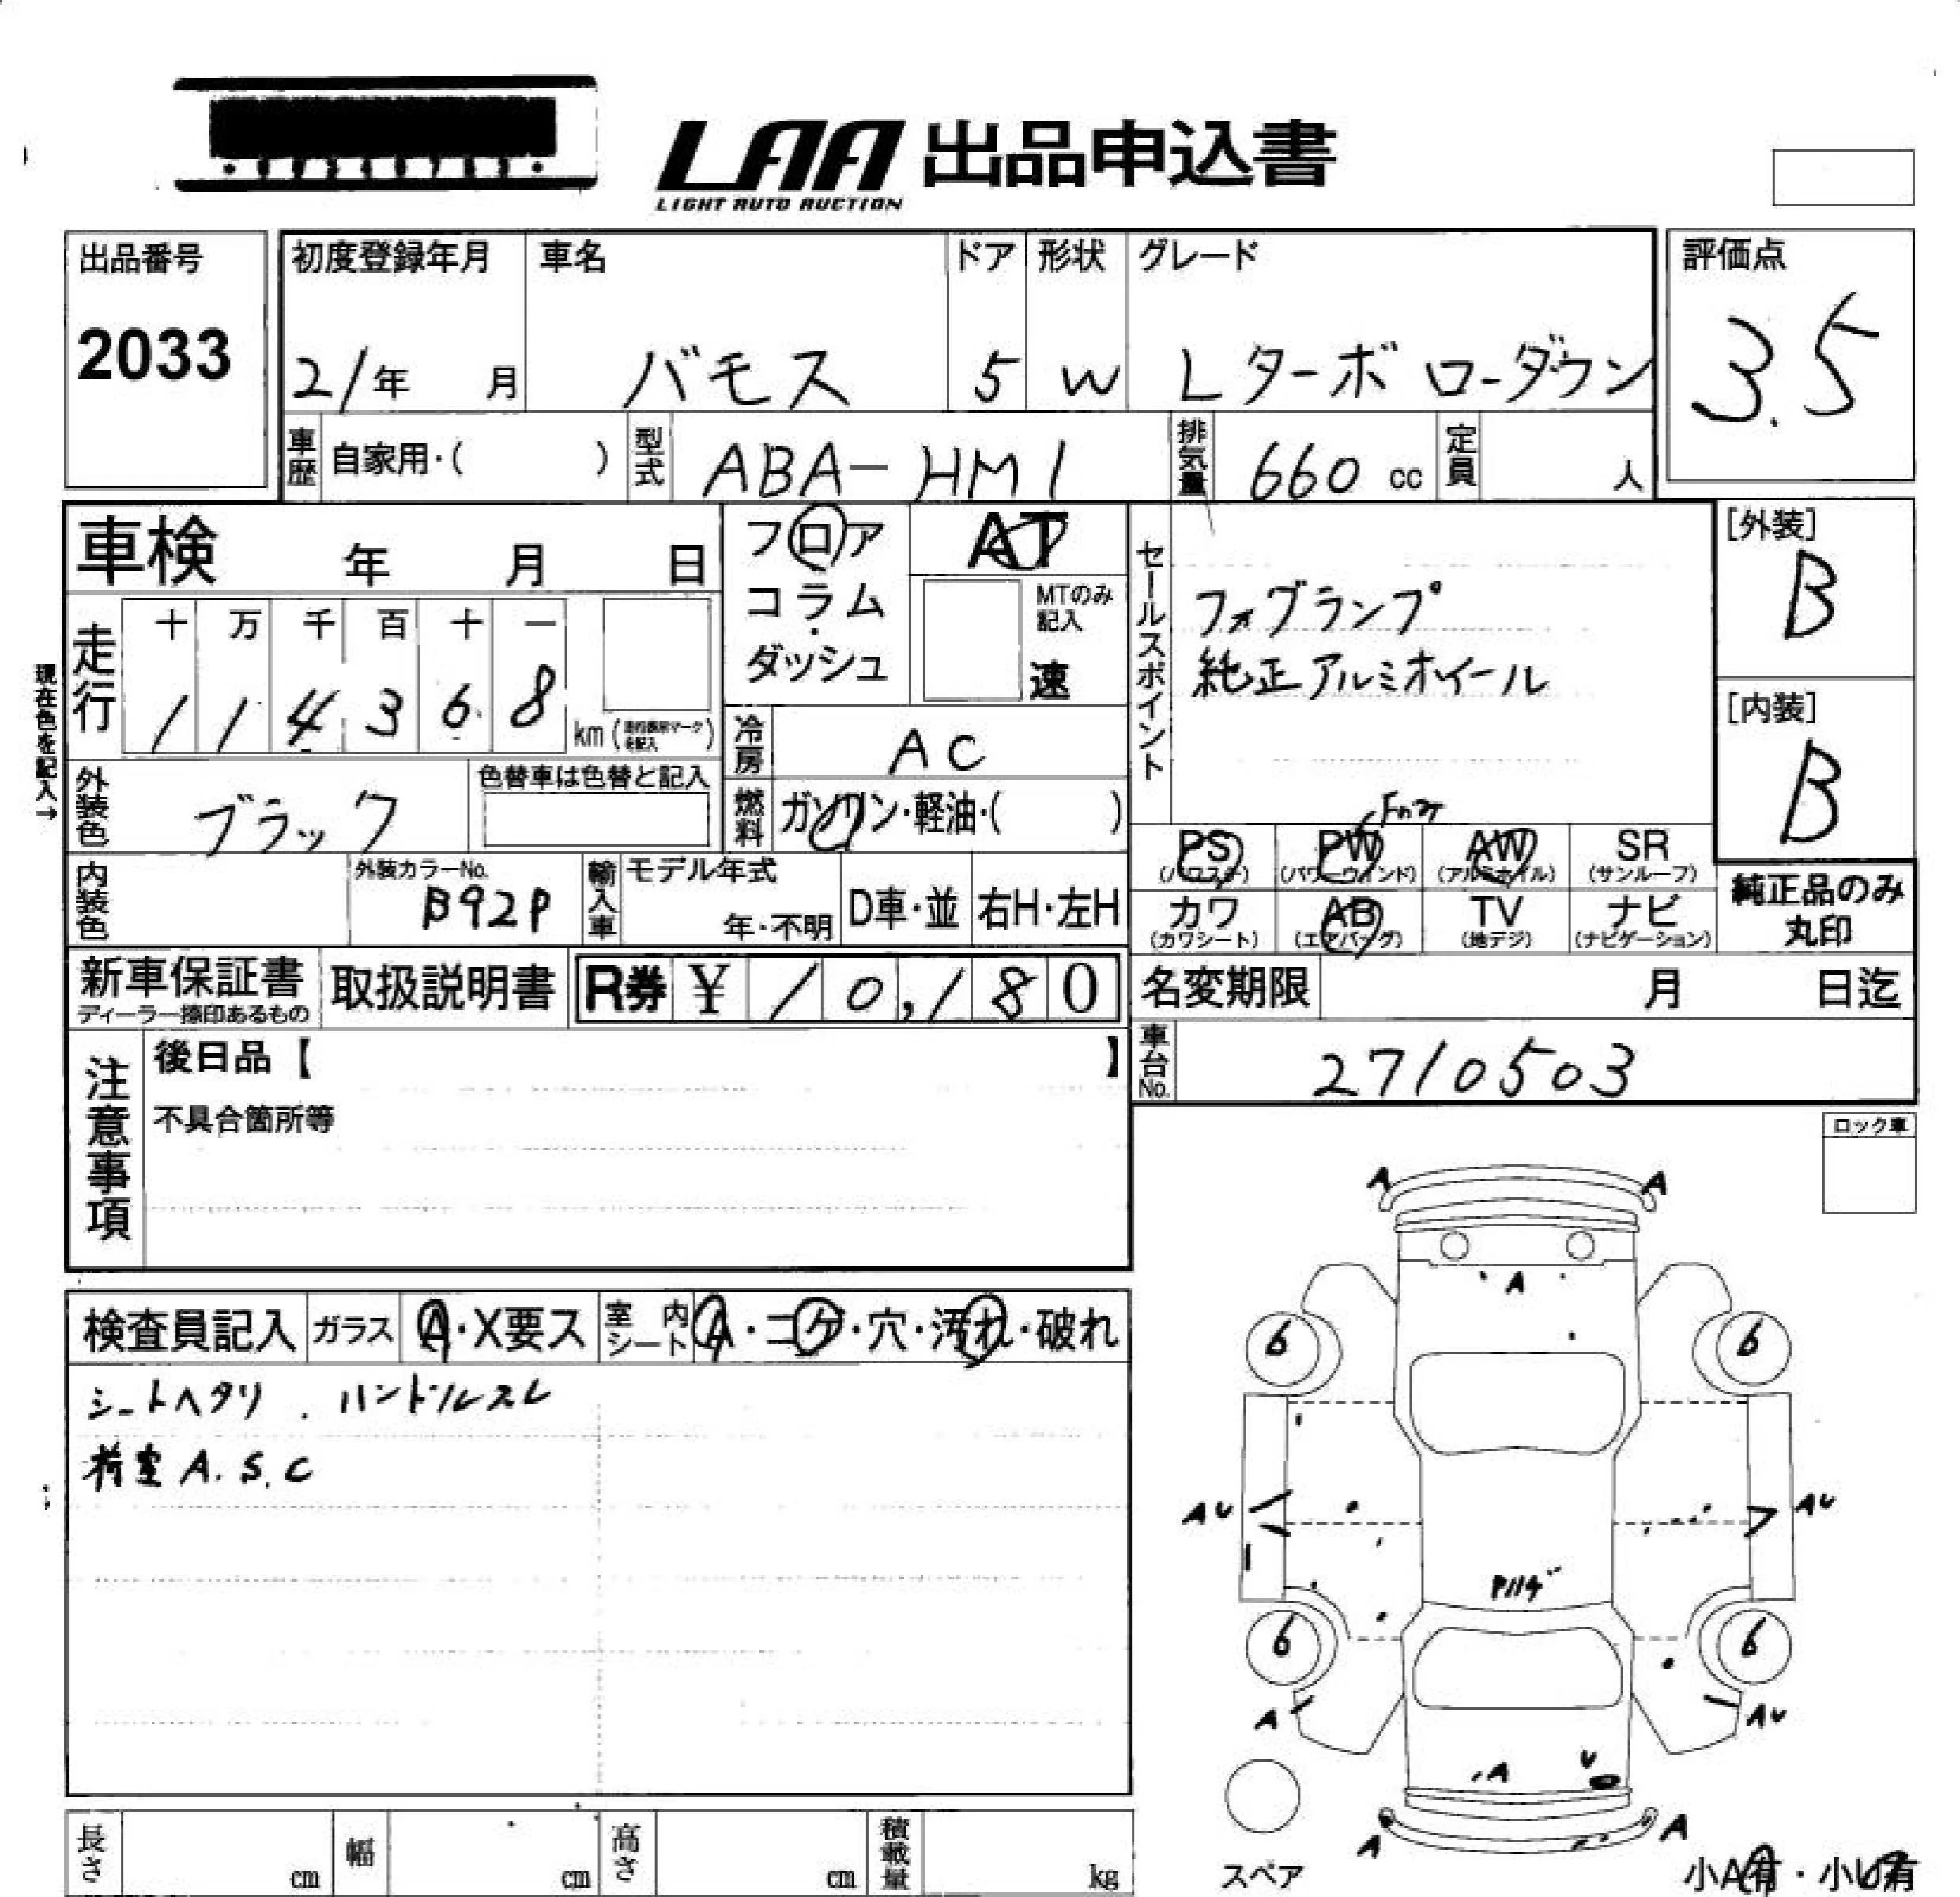 LAA 出品申込書
LIGHT AUTO AUCTION
出品番号
2033
初度登録年月
21年 月
車名
バモス
ドア
5
形状
W
グレード
Lターボ ローダウン
評価点
3.5
車歴 自家用・( )
型式 ABA-HM1
排気量 660 cc
定員 人
車検 年 月 日
フロア
コラム
・
ダッシュ
AT
MTのみ
記入
速
セールスポイント
フォグランプ
純正アルミホイール
[外装]
B
[内装]
B
現在色を記入→
走行
十 万 千 百 十 一
1 1 4 3 6 8
km
冷房 AC
燃料 ガソリン・軽油・( )
外装色 ブラック
色替車は色替と記入
内装色
外装カラーNo.
B92P
輸入車
モデル年式
年・不明
D車・並
右H・左H
PS
(パワステ)
PW
(パワーウィンド)
AW
(アルミホイル)
SR
(サンルーフ)
カワ
(カワシート)
AB
(エアバッグ)
TV
(地デジ)
ナビ
(ナビゲーション)
純正品のみ
丸印
新車保証書
ディーラー捺印あるもの
取扱説明書
R券 ¥ 10,180
名変期限 月 日迄
車台No. 2710503
注意事項
後日品【 】
不具合箇所等
ロック車
検査員記入
ガラス A・X要ス
室内シート A・コゲ・穴・汚れ・破れ
シートヘタリ . ハンドルスレ
荷室 A.S.C
A A
A
6 6
AU AU
6 6
A AU
A U
A A
スペア
小A有・小U有
長さ cm
幅 cm
高さ cm
積載量 kg